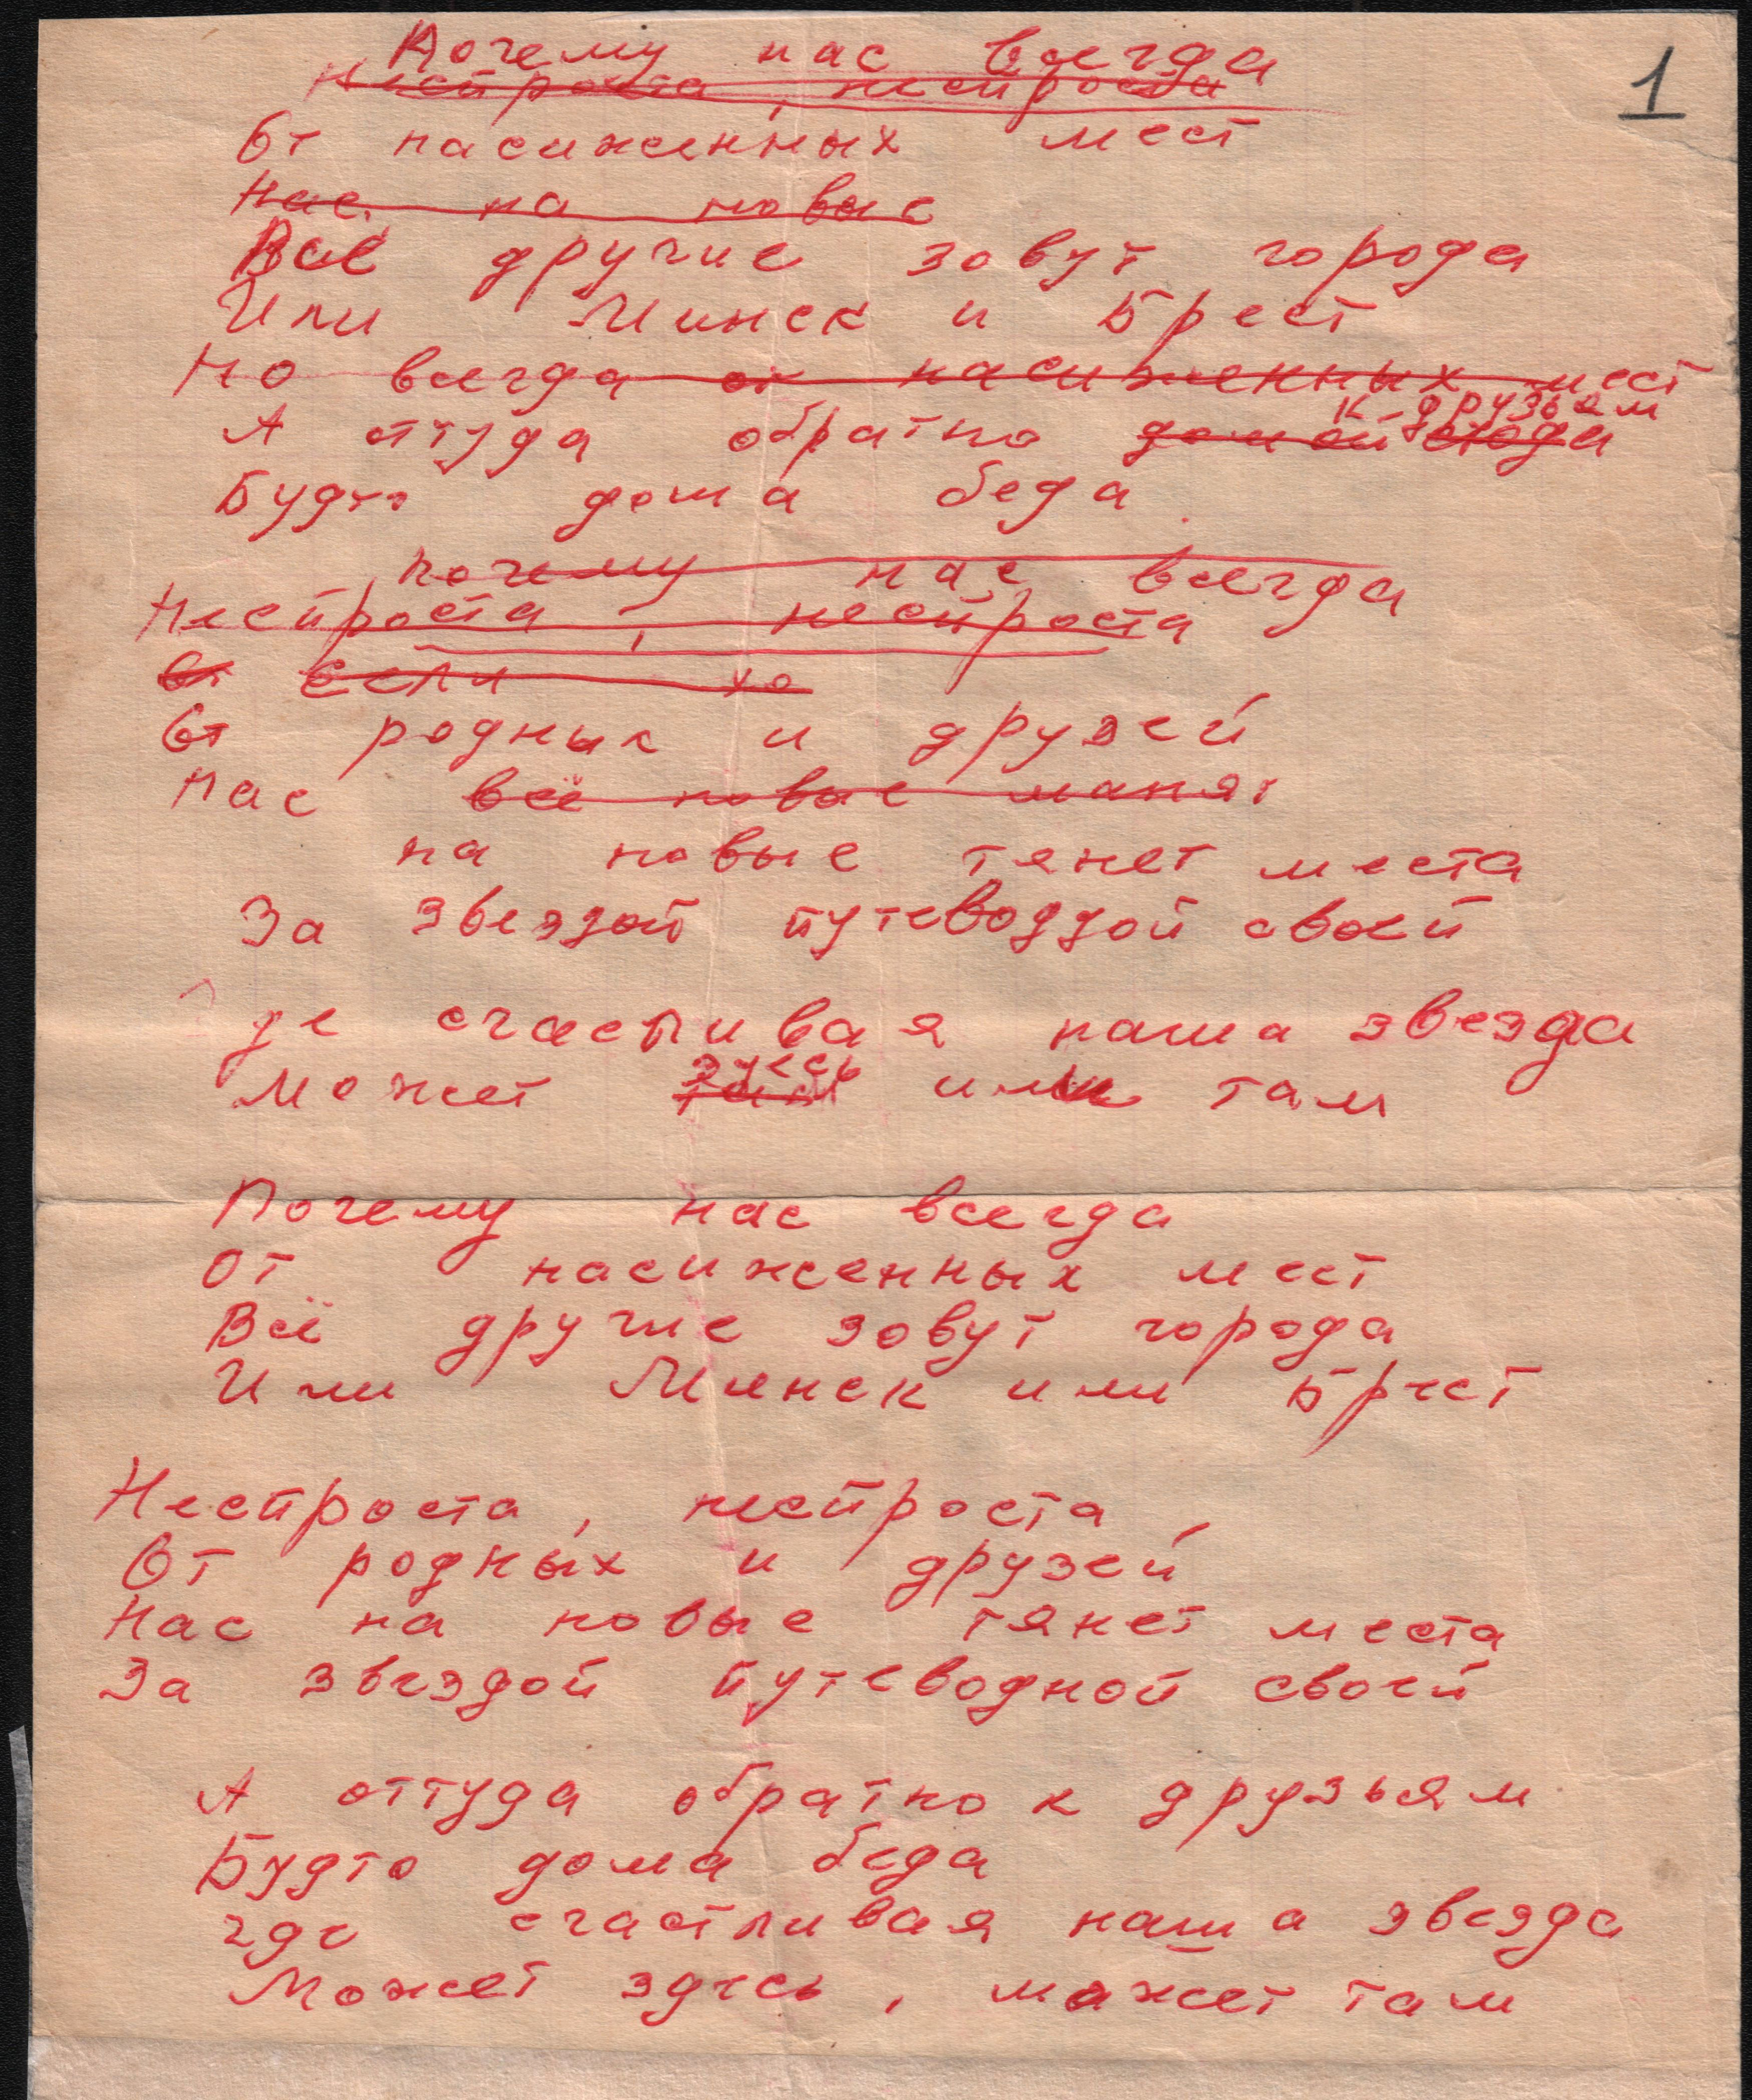 1
Почему нас всегда
Неспроста, неспроста
От насиженных мест
Нас на новые
Всё другие зовут города
Или Минск и Брест
Но всегда от насиженных мест
к друзьям
А оттуда обратно домой сюда
Будто дома беда
Почему нас всегда
Неспроста, неспроста
От если хо
От родных и друзей
Нас всё новые манят
на новые тянет места
За звездой путеводзой своей
Де счасливая наша звезда
здесь
Может там или там
Почему нас всегда
От насиженных мест
Всё другие зовут города
Или Минск или Брест
Неспроста, неспроста,
От родных и друзей
Нас на новые тянет места
За звездой путеводной своей
А оттуда обратно к друзьям
Будто дома беда
где счастливая наша звезда
Может здесь, может там